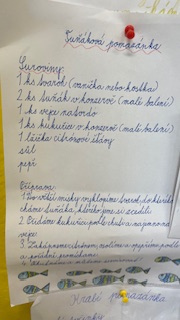 Tuňáková pomazánka
Suroviny:
1 ks tvaroh (vanička nebo kostka)
2 ks tuňák v konzervě (malé balení)
1 ks vejce natvrdo
1 ks kukuřice v konzervě (malé balení)
1 lžička citrónové šťávy
sůl
pepř
Příprava:
1. Do větší misky vyklopíme tvaroh, do kterého
dáme tuňáka, kterého jsme si scedili.
2. Přidáme kukuřici podle chuti a najemno
vejce.
3. Zakápneme citronem, osolíme a opepříme podle
a pořádně promícháme.
pomazánka